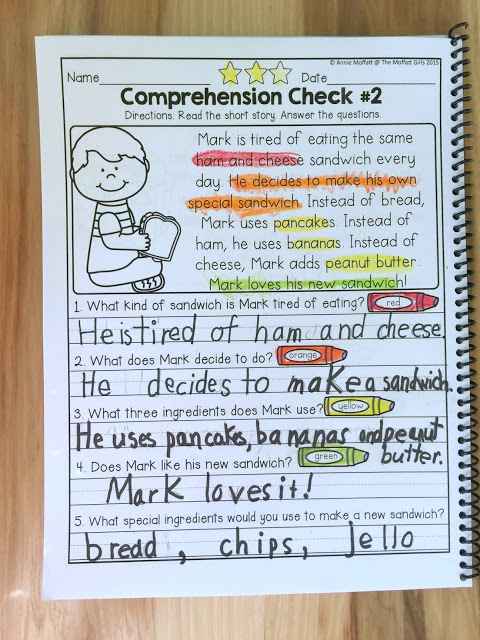 © Annie Moffatt @ The Moffatt Girls 2015
Name Date
Comprehension Check #2
Directions: Read the short story. Answer the questions.
Mark is tired of eating the same
ham and cheese sandwich every
day. He decides to make his own
special sandwich. Instead of bread,
Mark uses pancakes. Instead of
ham, he uses bananas. Instead of
cheese, Mark adds peanut butter.
Mark loves his new sandwich!
1. What kind of sandwich is Mark tired of eating? red
He is tired of ham and cheese.
2. What does Mark decide to do? orange
He decides to make a sandwich.
3. What three ingredients does Mark use? yellow
He uses pancakes, bananas and peanut
butter.
4. Does Mark like his new sandwich? green
Mark loves it!
5. What special ingredients would you use to make a new sandwich?
bread, chips, jello